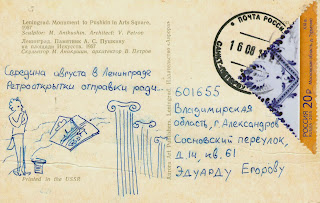 Leningrad. Monument to Pushkin in Arts Square.
1957
Sculptor M. Anikushin, Architect V. Petrov
Ленинград. Памятник А. С. Пушкину
на площади Искусств. 1957
Скульптор М. Аникушин, архитектор В. Петров
Середина августа в Ленинграде
Ретрооткрытки отправки ради...
Printed in the USSR
ПОЧТА РОССИИ
16 08
РОССИЯ 20 р
601655
Владимирская
область, г. Александров
Сосновский переулок,
д. 14, кв. 61
Эдуарду Егорову